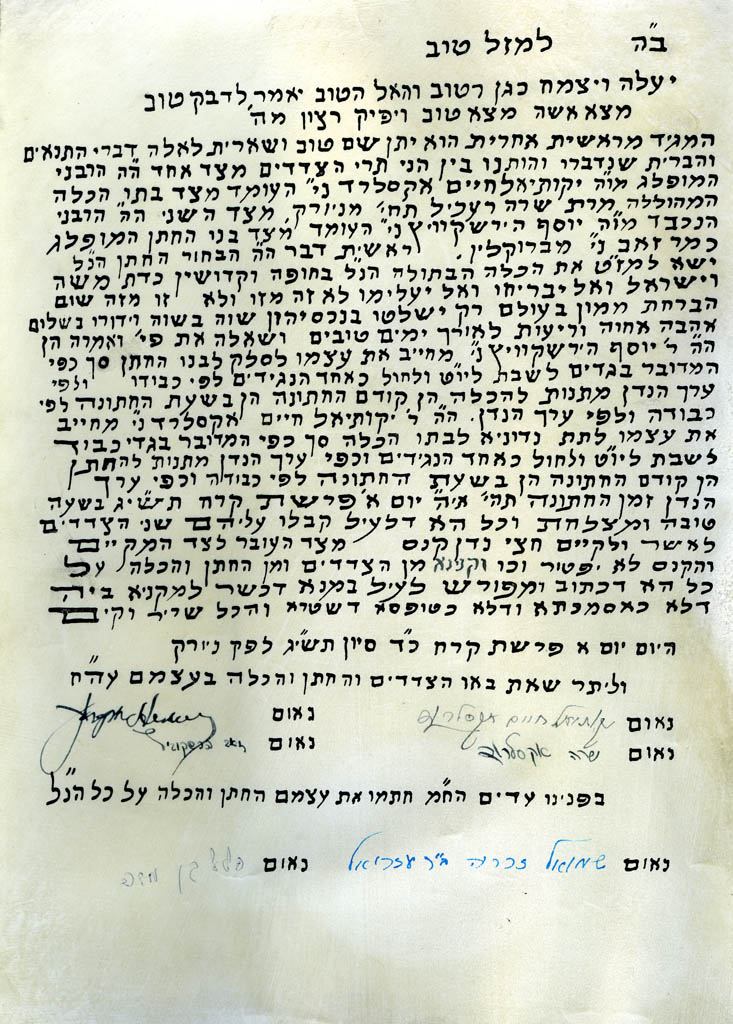 ב״ה למזל טוב
יעלה ויצמח כגן רטוב והאל הטוב יאמר לדבק טוב
מצא אשה מצא טוב ויפיק רצון מה׳
המגיד מראשית אחרית הוא יתן שם טוב ושארית לאלה דברי התנאים
והברית שנדברו והותנו בין הני תרי הצדדים מצד אחד ה״ה הרבני
המופלג מו״ה יקותיאל חיים אקסלרד ני״ העומד מצד בתו הכלה
המהוללה מרת שרה רעכיל תחי׳ מניורק, מצד השני הה״ הרבני
הנכבד מו״ה יוסף הירשקוויץ ני״ העומד מצד בנו החתן המופלג
כמר זאב ני״ מברוקלין. ראשית דבר ה״ה הבחור החתן הנ״ל
ישא למז״ט את הכלה הבתולה הנ״ל בחופה וקדושין כדת משה
וישראל ואל יבריחו ואל יעלימו לא זה מזו ולא זו מזה שום
הברחת ממון בעולם רק ישלטו בנכסיהון שוה בשוה וידורו בשלום
אהבה אחוה וריעות לאורך ימים טובים ושאלה את פי׳ ואמרה הן
הה״ ר׳ יוסף הירשקוויץ ני״ מחייב את עצמו לסלק לבנו החתן סך כפי
המדובר בגדים לשבת ליו״ט ולחול כאחד הנגידים לפי כבודו ולפי
ערך הנדן מתנות להכלה הן קודם החתונה הן בשעת החתונה לפי
כבודה ולפי ערך הנדן. הה״ ר׳ יקותיאל חיים אקסלרד ני״ מחייב
את עצמו לתת נדוניא לבתו הכלה סך כפי המדובר בגדי כבוד
לשבת ליו״ט ולחול כאחד הנגידים וכפי ערך הנדן מתנות להחתן
הן קודם החתונה הן בשעת החתונה לפי כבודה וכפי ערך
הנדן זמן החתונה תה׳ אי״ה יום א׳ פרשת קרח תשי״ג בשעה
טובה ומצלחת וכל הא דלעיל קבלו עליהם שני הצדדים
לאשר ולקיים חצי נדן קנס מצד העובר לצד המקיים
והקנס לא יפטיר וכו וקנינא מן הצדדים ומן החתן והכלה על
כל הא דכתוב ומפורש לעיל במנא דכשר למקניא ביה
דלא כאסמכתא ודלא כטופסא דשטריא והכל שריר וקים
היום יום א פרשת קרח כ״ד סיון תשי״ג לפק ניורק
וליתר שאת באו הצדדים והחתן והכלה בעצמם עה״ח
נאום יקותיאל חיים אקסלרוד נאום
נאום שרה אקסלרוד נאום זאב הירשקוביץ
בפנינו עדים הח״מ חתמו את עצמם החתן והכלה על כל הנ״ל
נאום שמואל זכריה ב״ר עזריאל נאום